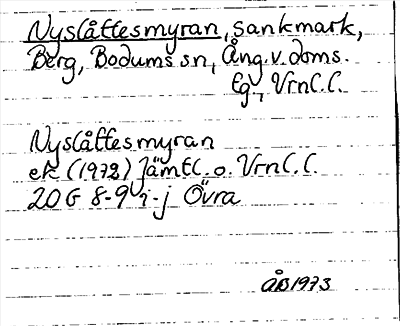 Nyslåttesmyran, sankmark,
Berg, Bodums sn, Ång.v.doms.
lg, Vrnl.l.
Nyslåttesmyran
ek (1972) Jämtl. o. Vrnl.l.
20G 8-9 i-j Övra
ÅB 1973